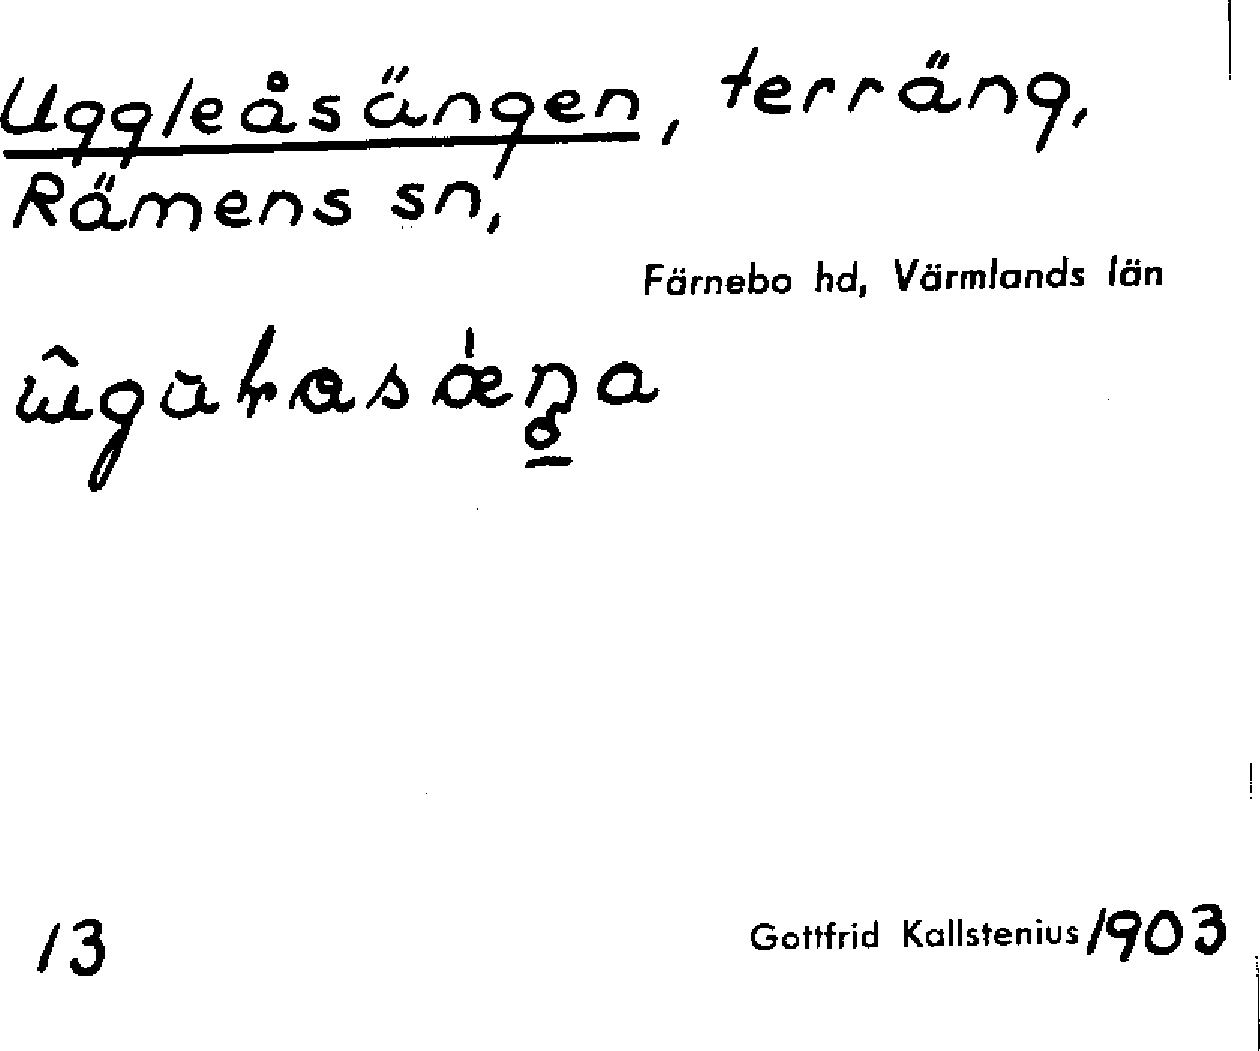 Uggleåsängen, terräng,
Rämens sn,
Färnebo hd, Värmlands län
13
Gottfrid Kallstenius 1903